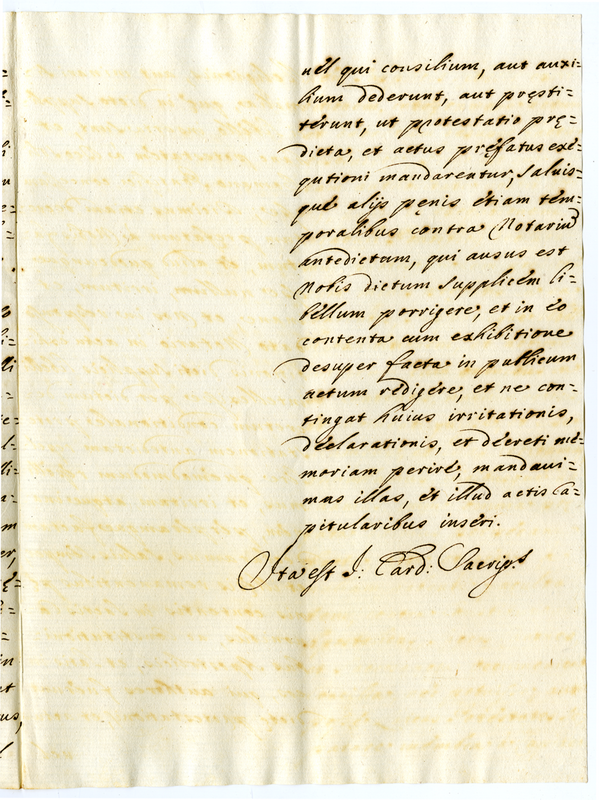 uel qui consilium, aut auxi=
lium dederunt, aut pręsti=
terunt, ut protestatio prę=
dicta, et actus pręfatus exe=
qutioni mandarentur, saluis=
que alijs pęnis etiam tem=
poralibus contra Notariũ
antedictum, qui ausus est
Nobis dictum supplicem li=
bellum porrigere, et in eo
contenta cum exhibitione
desuper facta in publicum
actum redigere, et ne con=
tingat huius irritationis,
declarationis, et decreti me=
moriam perire, mandaui=
mus illas, et illud actis Ca=
pitularibus inseri.
Ita est J: Card: Sacrip.s